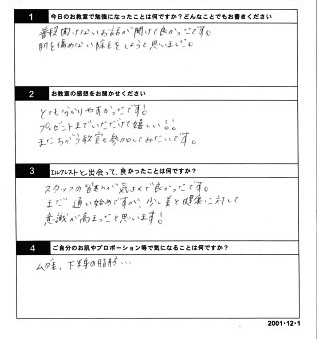 1 今日のお教室で勉強になったことは何ですか？どんなことでもお書きください
普段聞けないお話が聞けて良かったです。
肌を傷めない除毛をしようと思いました。
2 お教室の感想をお聞かせください
とても分かりやすかったです!
プレゼントまでいただけて嬉しい!!
またちがう教室も参加してみたいです。
3 エルクレストと出会って、良かったことは何ですか？
スタッフの皆さんが気さくで良かったです。
まだ通い始めですが、少し美と健康に対して
意識が高まったと思います!
4 ご自分のお肌やプロポーション等で気になることは何ですか？
ムダ毛、下半身の脂肪…
2001・12・1